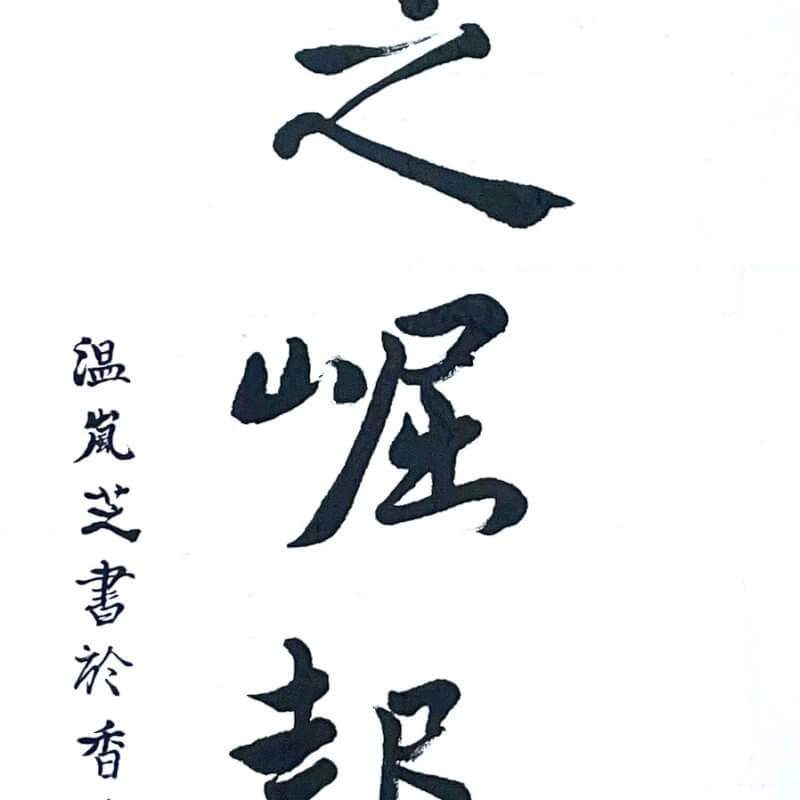 之崛起
温嵐芝書於香